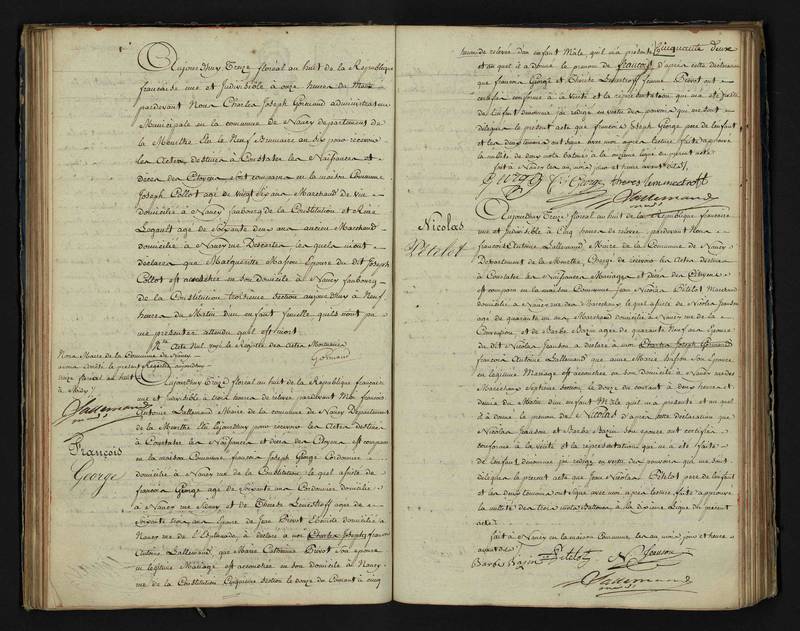 Aujourd'huy Treize floréal an huit de la Republique
francaise une et Indivisible à onze heures du
pardevant Nous Charles Joseph Gormand administrateur
Municipale en la commune de Nancy departement de
la Meurthe Elu le Neuf Brumaire an six pour recevoir
les Actes destinés à Constater les Naissances et
Décès des Citoyens est comparu en la maison Commune
Joseph Collot agé de vingt six ans Marchand de vin
domicilié à Nancy faubourg de la Constitution et Réné
agé de soixante deux ans ancien Marchand
domicilié à Nancy rue Descartes les quels m'ont
déclarés que Marguerite Masson Epouse du dit Joseph
Collot est accouchée en son domicile à Nancy faubourg
de la Constitution troisieme Section aujourd'huy à Neuf
heures du Matin d'un enfant femelle quils n'ont pu
me presenter attendu quil est mort.
Acte Nul voyé le Registre des Actes Mortuaires
Gormand
Nous Maire de la Commune de Nancy
avons arrêté le present Registre aujourdhuy
treize floreal an huit
à Midy
Lallemand
maire
Aujourdhuy Treize floreal an huit de la Republique française
une et indivisible à trois heures de relevée pardevant Moi françois
Antoine Lallemand Maire de la commune de Nancy Département
de la Meurthe Elu pour recevoir les Actes destinés
à Constater les Naissances et décès des Citoyens est comparu
en la maison Commune françois Joseph George Cordonnier
domicilié à Nancy rue de la Constitution le quel assisté de
francois George agé de soixante ans Cordonnier domicilié
à Nancy rue Sidney et de Therese Lenestroff agée de
soixante trois ans Epouse de Jean Pivot domicilié à
Nancy rue de l'Esplanade à déclaré à moi Charles Joseph françois
Antoine Lallemand, que Marie Catherine Pivot son épouse
en legitime Mariage est accouchée en son domicile à Nancy
rue de la Constitution Cinquieme Section le douze du Courant à cinq
François
George
Cinquante deux
heures de relevée d'un enfant Mâle, qu'il m'a présenté
et au quel il a donné le prenom de françois d'après cette déclaration
que françois George et Therése Lenestroff femme Pivot ont
certifiée conforme à la vérité et la représentation qui m'a été faite
de l'enfant dénommé j'ai rédigé en vertu des pouvoirs qui me sont
délégués le présent acte que francois Joseph George pere de l'enfant
et les deux temoins ont signé avec moi après lecture faite approuvé
la nullité de deux mots batonés à la onzieme ligne du present acte
fait à Nancy les an mois jour et heure avant dits
George George therese lenesestroff
Lallemand
maire
Nicolas
Petelot
Aujourdhuy Treize floreal an huit de la République francaise
une et Indivisible à Cinq heures de relevée pardevant Nous
françois Antoine Lallemand Maire de la Commune de Nancy
Departement de la Meurthe, Chargé de recevoir les Actes destinés
à Constater les Naissances Mariages et décès des Citoyens
est comparu en la maison Commune Jean Nicolas Pétélot Marchand
domicilié à Nancy rue des Marechaux le quel assisté de Nicolas Janson
agé de quarante un ans Marchand domicilié à Nancy rue de la
Convention et de Barbe Bazin agée de quarante Neuf ans Epouse
du dit Nicolas Jeanson a declaré à moi Charles Joseph Gormand
francois Antoine Lallemand que anne Marie son Epouse
en legitime Mariage est accouchée en son domicile à Nancy rue des
Marechaux Septieme Section le douze du courant à deux heures et
demie du Matin d'un enfant Mâle quil m'a présenté et au quel
il a donné le prenom de Nicolas d'après cette declaration que
Nicolas Jeansone et Barbe Bazin son épouse ont certifiée
conforme à la vérité et la réprésentation qui m'a été faite
de l'enfant dénommé j'ai rédigé en vertu des pouvoirs qui me sont
délegués le présent acte que Jean Nicolas Pétélot pere de l'enfant
et les deux temoins ont signé avec moi après lecture faite approuvé
la nullité des trois mots batonnés à la dixieme Ligne du present
acte
fait à Nancy en la maison Commune les an mois jour et heure
avant dits
Barbe Bazin Petelot N Jeanson
Lallemand
maire